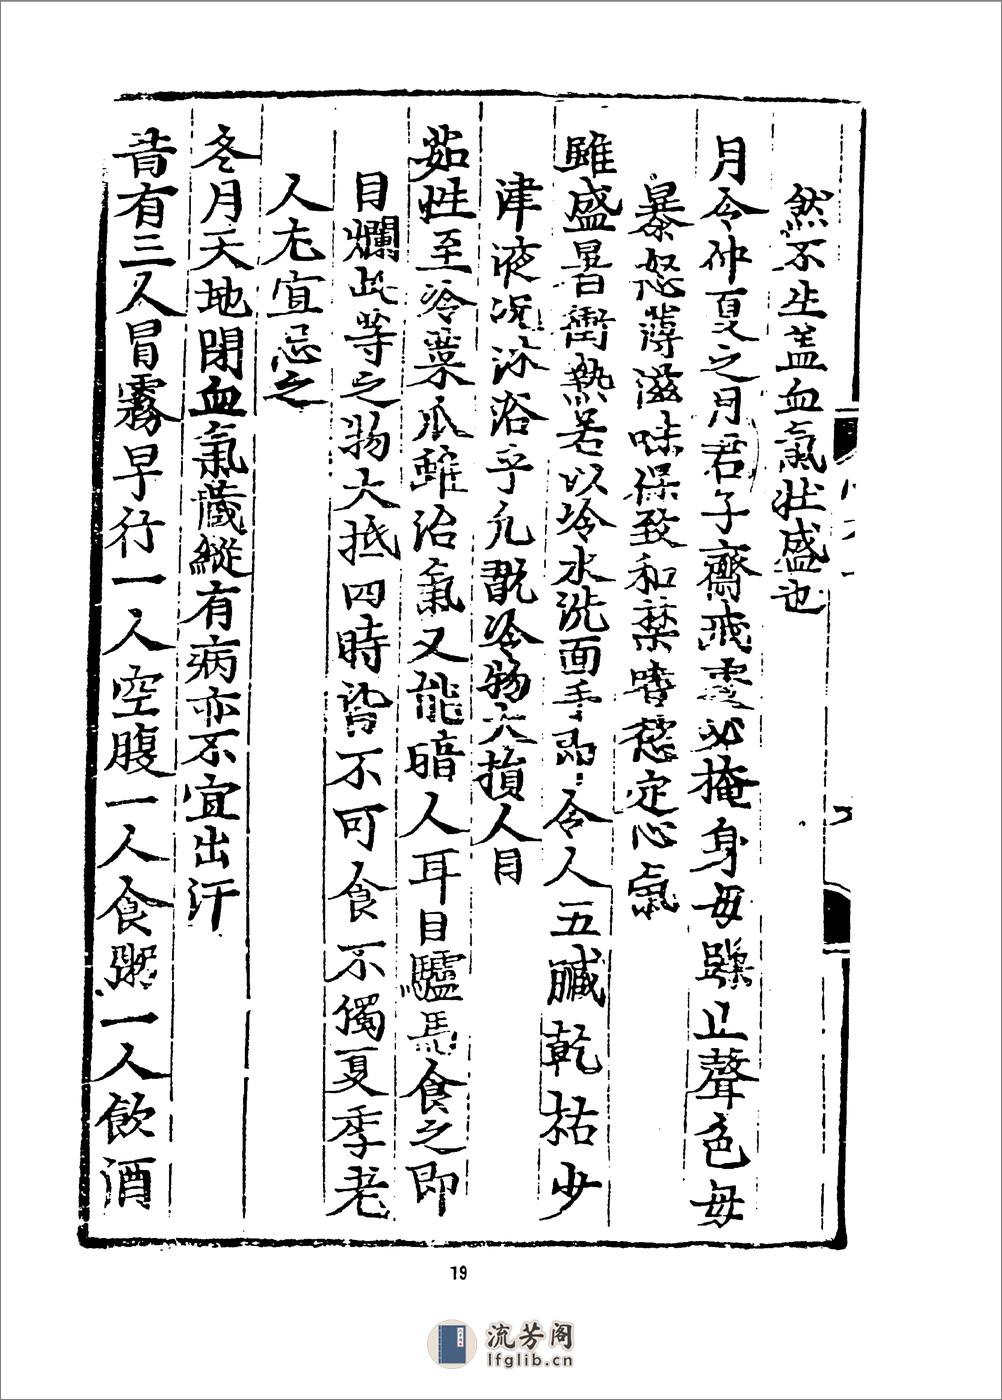 然不生盖血氣壯盛也
月令仲夏之月君子齋戒處必掩身毋躁止聲色毋
暴怒薄滋味保致和禁嗜慾定心氣
雖盛暑衝熱若以冷水洗面手即令人五臟乾枯少
津液况沐浴乎凢既冷物大損人目
茹性至冷菜瓜雖治氣又能暗人耳目驢馬食之即
目爛此等之物大抵四時皆不可食不獨夏季老
人尢宜忌之
冬月天地閉血氣藏縱有病亦不宜出汗
昔有三人冒霧早行一人空腹一人食粥一人飲酒
19
流芳阁
lfglib.cn